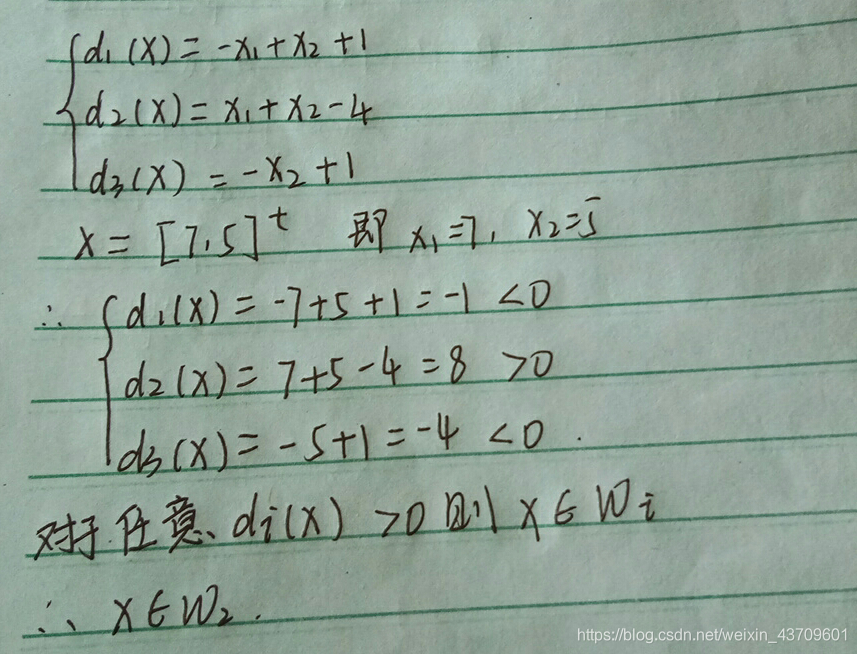 d₁(X) = -x₁ + x₂ + 1
d₂(X) = x₁ + x₂ - 4
d₃(X) = -x₂ + 1
X = [7,5]ᵗ 即 x₁=7, x₂=5
∴ d₁(X) = -7+5+1 = -1 <0
d₂(X) = 7+5-4 = 8 >0
d₃(X) = -5+1 = -4 <0.
对于任意、di(X) >0 则 X∈Wi
∴ X∈W₂.
https://blog.csdn.net/weixin_43709601